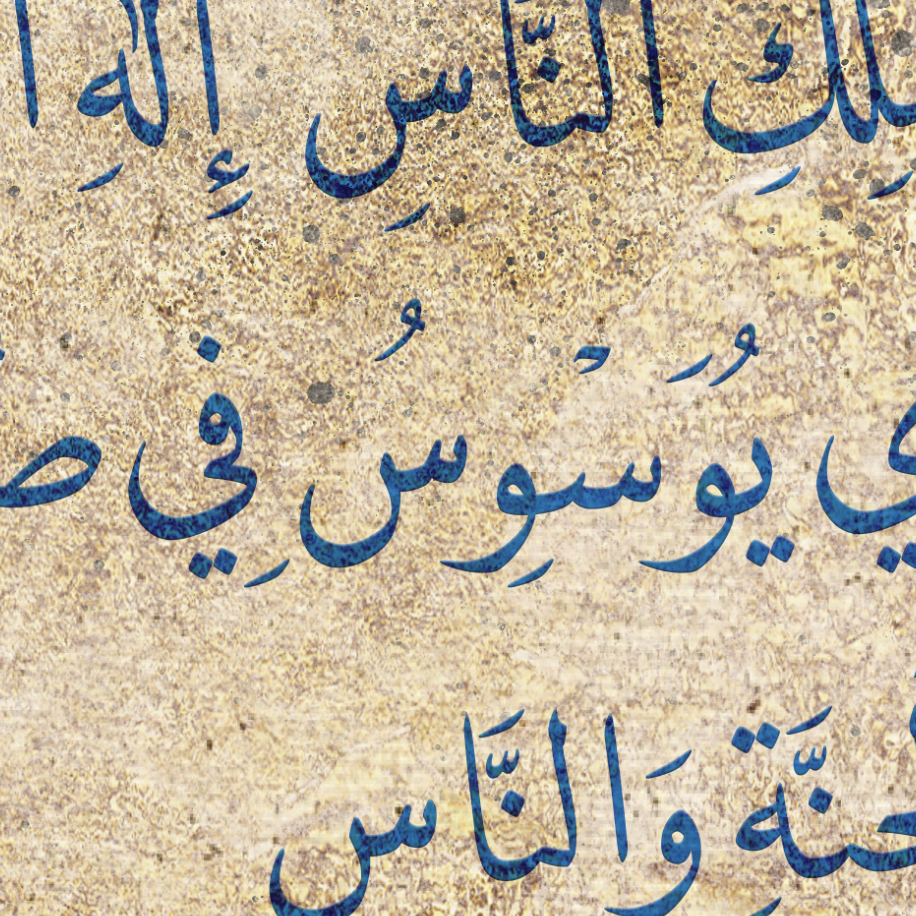 مَلِكِ النَّاسِ إِلَٰهِ
يُوَسْوِسُ فِي
الْجِنَّةِ وَالنَّاسِ